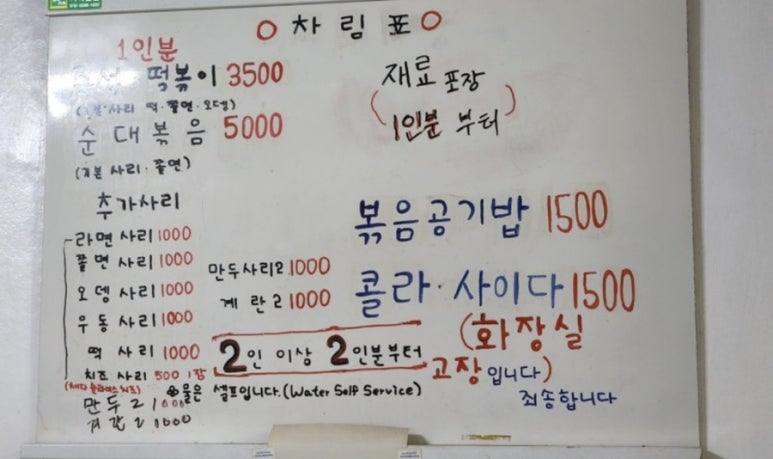 ○ 차림표 ○
1인분
떡볶이 3500
(기본사리 떡·쫄면·오뎅)
순대볶음 5000
(기본 사리·쫄면)
재료 포장
(1인분 부터)
추가사리
라면 사리 1000
쫄면 사리 1000
오뎅 사리 1000
우동 사리 1000
떡 사리 1000
치즈 사리 500 1장
(체다 슬라이스 치즈)
만두 2 1000
계란 2 1000
만두사리2 1000
계란 2 1000
볶음공기밥 1500
콜라·사이다 1500
2인 이상 2인분부터
(화장실
고장입니다)
죄송합니다
※물은 셀프입니다.(Water Self Service)